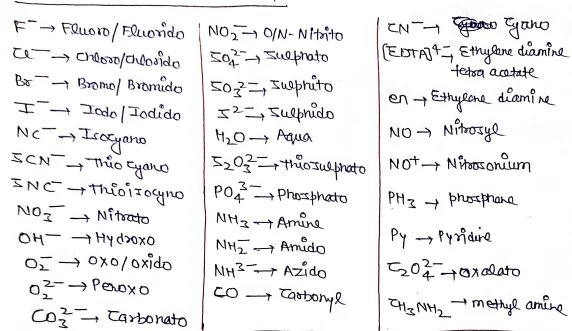 F⁻ → Fluoro/Fluorido
Cl⁻ → Chloro/chlorido
Br⁻ → Bromo/Bromido
I⁻ → Iodo/Iodido
NC⁻ → Isocyano
SCN⁻ → Thio cyano
SNC⁻ → Thioisocyno
NO₃⁻ → Nitrato
OH⁻ → Hydroxo
O₂⁻ → oxo/oxido
O₂²⁻ → Peroxo
CO₃²⁻ → Carbonato
NO₂⁻ → O/N-Nitrito
SO₄²⁻ → Sulphato
SO₃²⁻ → Sulphito
S²⁻ → Sulphido
H₂O → Aqua
S₂O₃²⁻ → thiosulphato
PO₄³⁻ → Phosphato
NH₃ → Amine
NH₂⁻ → Amido
NH³⁻ → Azido
CO → Carbonyl
CN⁻ → Cyano
[EDTA]⁴⁻ → Ethylene diamine
tetra acetate
en → Ethylene diamine
NO → Nitrosyl
NO⁺ → Nitrosonium
PH₃ → phosphane
Py → Pyridine
C₂O₄²⁻ → oxalato
CH₃NH₂ → methyl amine